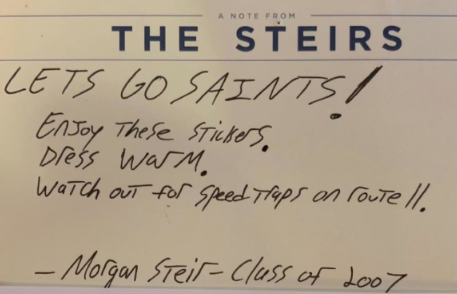 A NOTE FROM
THE STEIRS
LETS GO SAINTS!
Enjoy These stickers.
Dress Warm.
Watch out for speed traps on route 11.
- Morgan Steir - Class of 2007